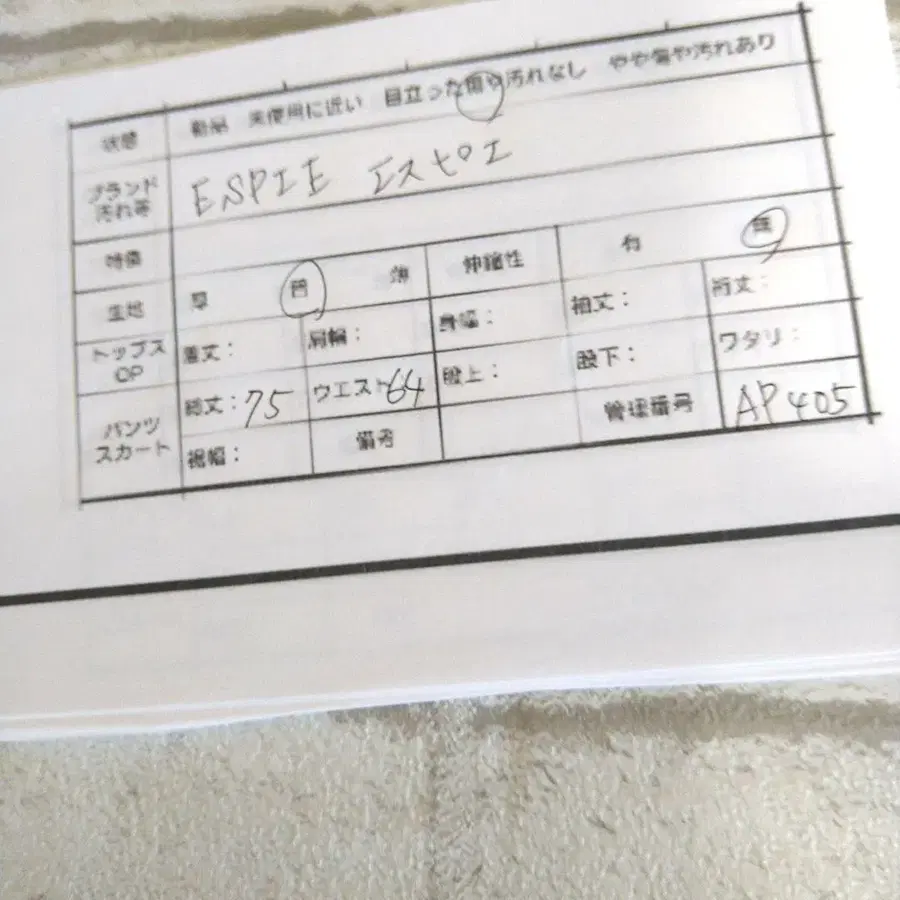 状態 新品 未使用に近い 目立った傷や汚れなし やや傷や汚れあり
ブランド 汚れ等 ESPIE エスピエ
特徴
生地 厚 普 薄 伸縮性 有 無
トップス OP 着丈： 肩幅： 身幅： 袖丈： 裄丈：
パンツ スカート 総丈：75 ウエスト64 股上： 股下： ワタリ：
裾幅： 備考 管理番号 AP405